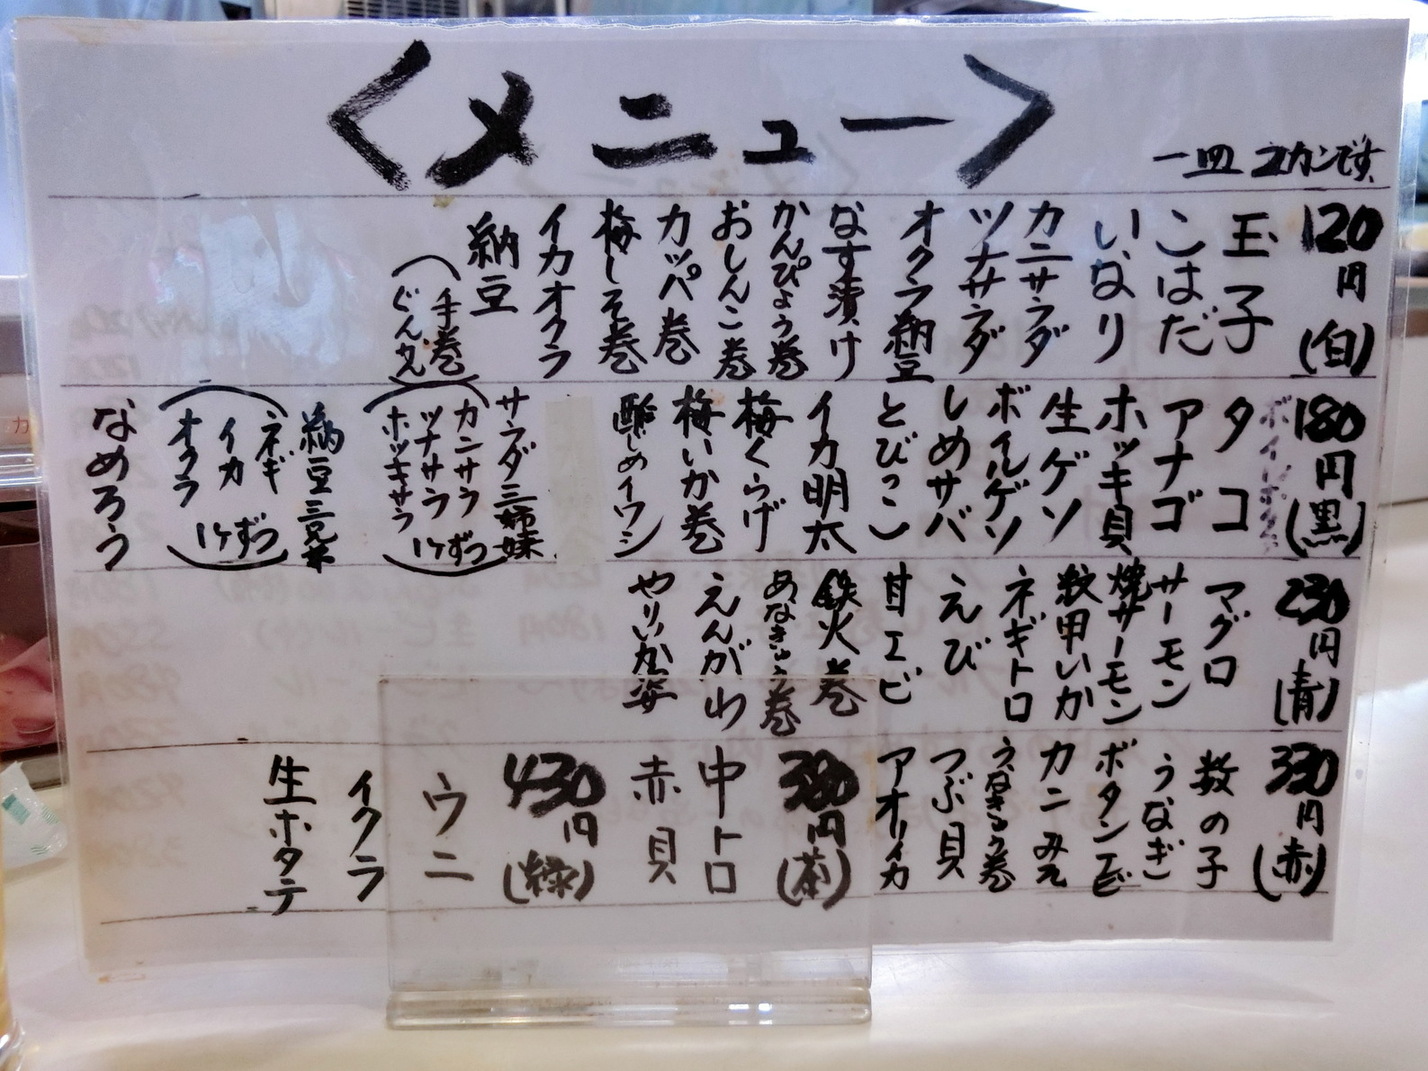 <メニュー>
一皿 2カンです
120円(白)
玉子
こはだ
いなり
カニサラダ
ツナサラダ
オクラ納豆
なす漬け
かんぴょう巻
おしんこ巻
カッパ巻
梅しそ巻
イカオクラ
納豆
(手巻
ぐんかん)
180円(黒)
タコ
アナゴ
ホッキ貝
生ゲソ
ボイルゲソ
しめサバ
とびっこ
イカ明太
梅くらげ
梅いか巻
酢じめイワシ
サラダ三姉妹
(カニサラ
ツナサラ
ホッキサラ
1ケずつ)
納豆三兄弟
(ネギ
イカ
オクラ
1ケずつ)
なめろう
230円(青)
マグロ
サーモン
焼サーモン
紋甲いか
ネギトロ
えび
甘エビ
鉄火巻
あなきゅう巻
えんがわ
やりいか姿
330円(赤)
数の子
うなぎ
ボタンエビ
カニみそ
うなきゅう巻
つぶ貝
アオリイカ
380円(茶)
中トロ
赤貝
430円(緑)
ウニ
イクラ
生ホタテ